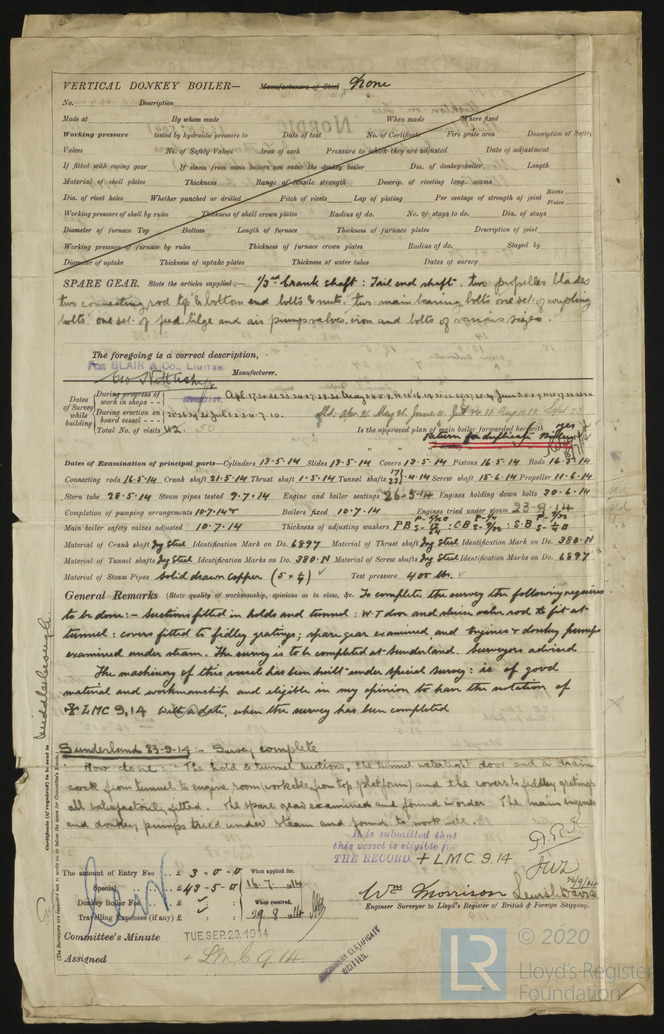 VERTICAL DONKEY BOILER— Manufacturers of Steel None
No. Description
Made at By whom made When made Where fixed
Working pressure tested by hydraulic pressure to Date of test No. of Certificate Fire grate area Description of Safety
Valves No. of Safety Valves Area of each Pressure to which they are adjusted Date of adjustment
If fitted with easing gear If steam from main boilers can enter the donkey boiler Dia. of donkey boiler Length
Material of shell plates Thickness Range of tensile strength Descrip. of riveting long. seams
Dia. of rivet holes Whether punched or drilled Pitch of rivets Lap of plating Per centage of strength of joint Rivets Plates
Working pressure of shell by rules Thickness of shell crown plates Radius of do. No. of stays to do. Dia. of stays
Diameter of furnace Top Bottom Length of furnace Thickness of furnace plates Description of joint
Working pressure of furnace by rules Thickness of furnace crown plates Radius of do. Stayed by
Diameter of uptake Thickness of uptake plates Thickness of water tubes Dates of survey
SPARE GEAR. State the articles supplied:— 1/3rd Crank shaft: Tail end shaft. two propeller blades
two connecting rod top & bottom end bolts & nuts. two main bearing bolts one set of coupling
bolts one set of feed, bilge and air pump valves, iron and bolts of various sizes.
The foregoing is a correct description,
FOR BLAIR & CO., LIMITED. Manufacturer.
Dates of Survey while building
During progress of work in shops
During erection on board vessel
Total No. of visits 42. 50
Is the approved plan of main boiler forwarded herewith yes
Dates of Examination of principal parts—Cylinders 13.5.14 Slides 13.5.14 Covers 13.5.14 Pistons 16.5.14 Rods 16.5.14
Connecting rods 16.5.14 Crank shaft 21.5.14 Thrust shaft 1.5.14 Tunnel shafts Screw shaft 15.6.14 Propeller 11.6.14
Stern tube 28.5.14 Steam pipes tested 9.7.14 Engine and boiler seatings 26.5.14 Engines holding down bolts 30.6.14
Completion of pumping arrangements 10.7.14 Boilers fixed 10.7.14 Engines tried under steam 23-9-14
Main boiler safety valves adjusted 10.7.14 Thickness of adjusting washers
Material of Crank shaft Ing Steel Identification Mark on Do. 6897 Material of Thrust shaft Ing Steel Identification Mark on Do. 380.N
Material of Tunnel shafts Ing Steel Identification Marks on Do. 380.N Material of Screw shafts Ing Steel Identification Marks on Do. 6897
Material of Steam Pipes Solid drawn copper Test pressure 400 lbs.
General Remarks (State quality of workmanship, opinions as to class, &c. To complete the survey the following requires
to be done:- Suctions fitted in holds and tunnel: W.T door and sluice valve rod to fit at
tunnel: covers fitted to fidley gratings; spare gear examined, and Engines & donkey pumps
examined under steam. The survey is to be completed at Sunderland. Surveyors advised
The machinery of this vessel has been built under special survey: is of good
material and workmanship and eligible in my opinion to have the notation of
LMC 9,14 with a date, when the survey has been completed
Sunderland 23-9-14:- Survey complete
Now done:- The hold & tunnel suctions, the tunnel watertight door and a drain
cock from tunnel to engine room (workable from top platform) and the covers to fiddley gratings
all satisfactorily fitted. The spare gear examined and found in order. The main engines
and donkey pumps tried under steam and found to work well.
It is submitted that
this vessel is eligible for
THE RECORD. + LMC 9.14
The amount of Entry Fee £ 3-0-0 When applied for,
Special £ 43-5-0 16.7.14
Donkey Boiler Fee £ When received,
Travelling Expenses (if any) £ 29.8.14
Wm Morrison Lewis Davis
Engineer Surveyor to Lloyd's Register of British & Foreign Shipping.
Committee's Minute TUE.SEP.29.1914
Assigned + LMC 9.14
MACHINERY CERTIFICATE
WRITTEN.
Middlesbrough
Certificate (if required) to be sent to
© 2020
LR
Lloyd's Register
Foundation